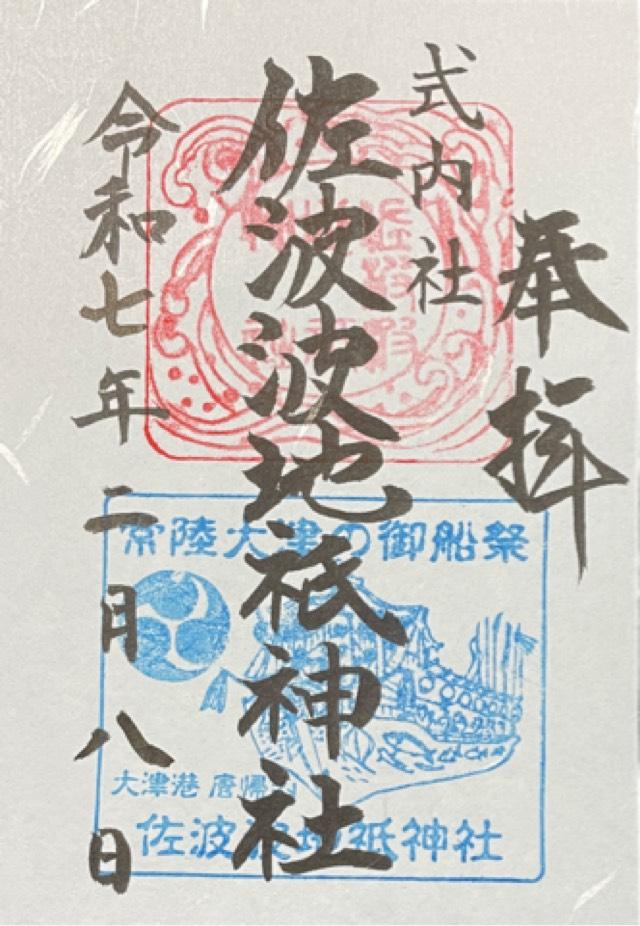 奉拝
式内社
佐波波地祇神社
令和七年二月八日
常陸大津の御船祭
大津港 唐帰山
佐波波地祇神社